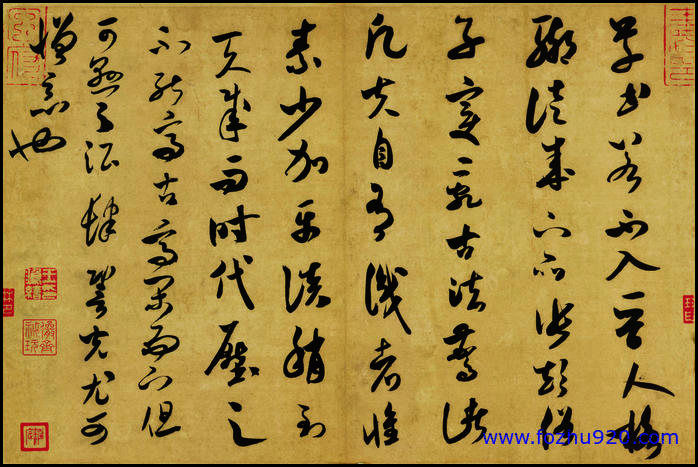 草書若不入晉人格
輒徒成下品張顛俗
子變亂古法驚諸
凡夫自有識者懷
素少加平淡稍到
天成而時代壓之
不能高古高閑而下但
可懸之酒肆䛒光尤可
憎惡也
www.fozhu920.com